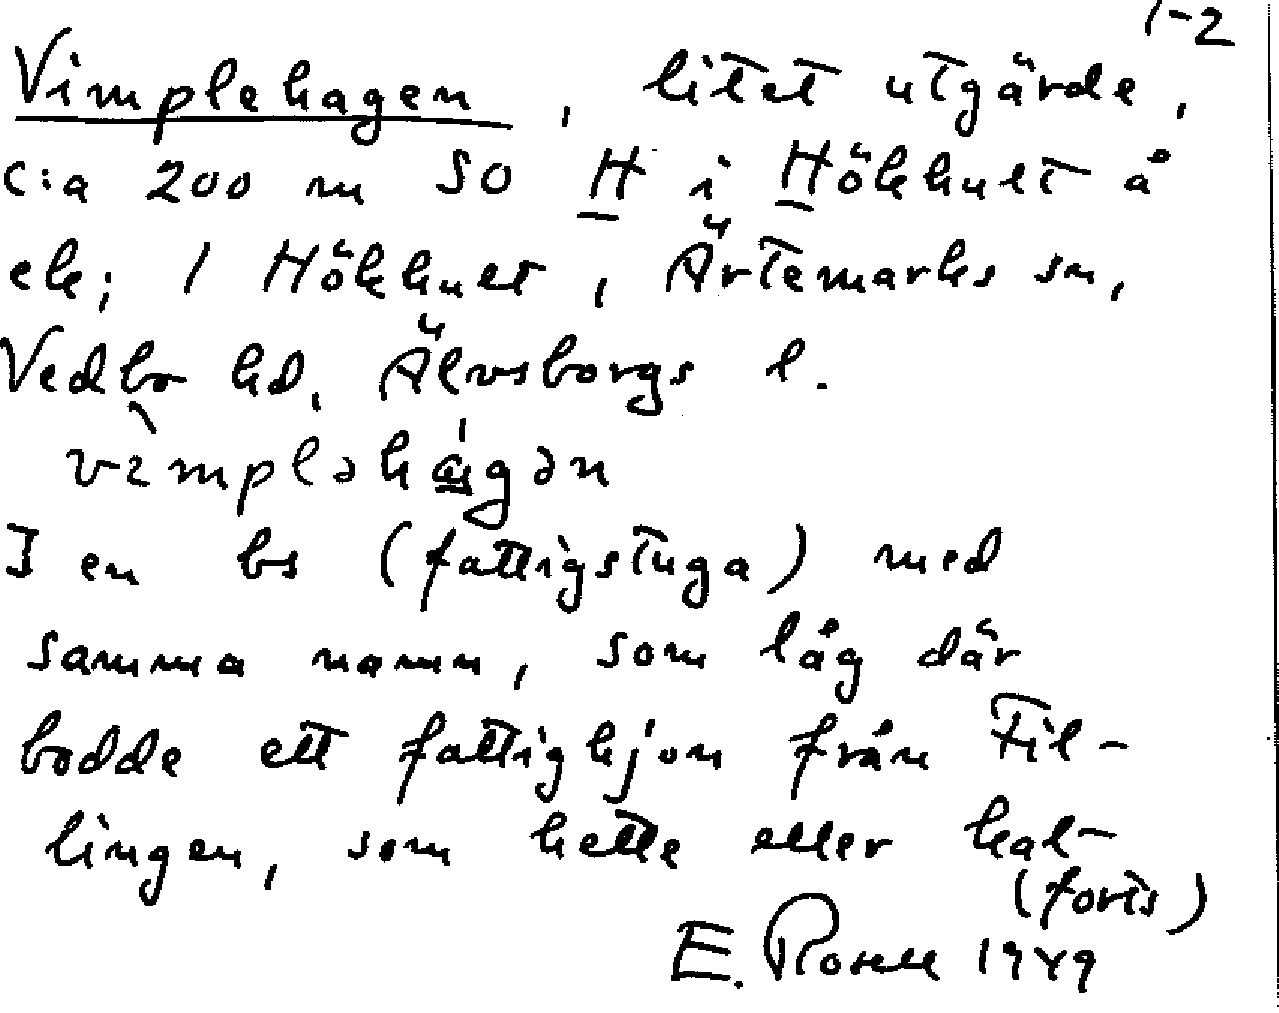 1-2
Vimplehagen, litet utgärde,
c:a 200 m SO H i Hökhult å
ek; 1 Hökhult, Ärtemarks sn,
Vedbo hd, Älvsborgs l.
I en bs (fattigstuga) med
samma namn, som låg där
bodde ett fattighjon från Fil-
lingen, som hette eller kal-
(forts)
E. Rosell 1949